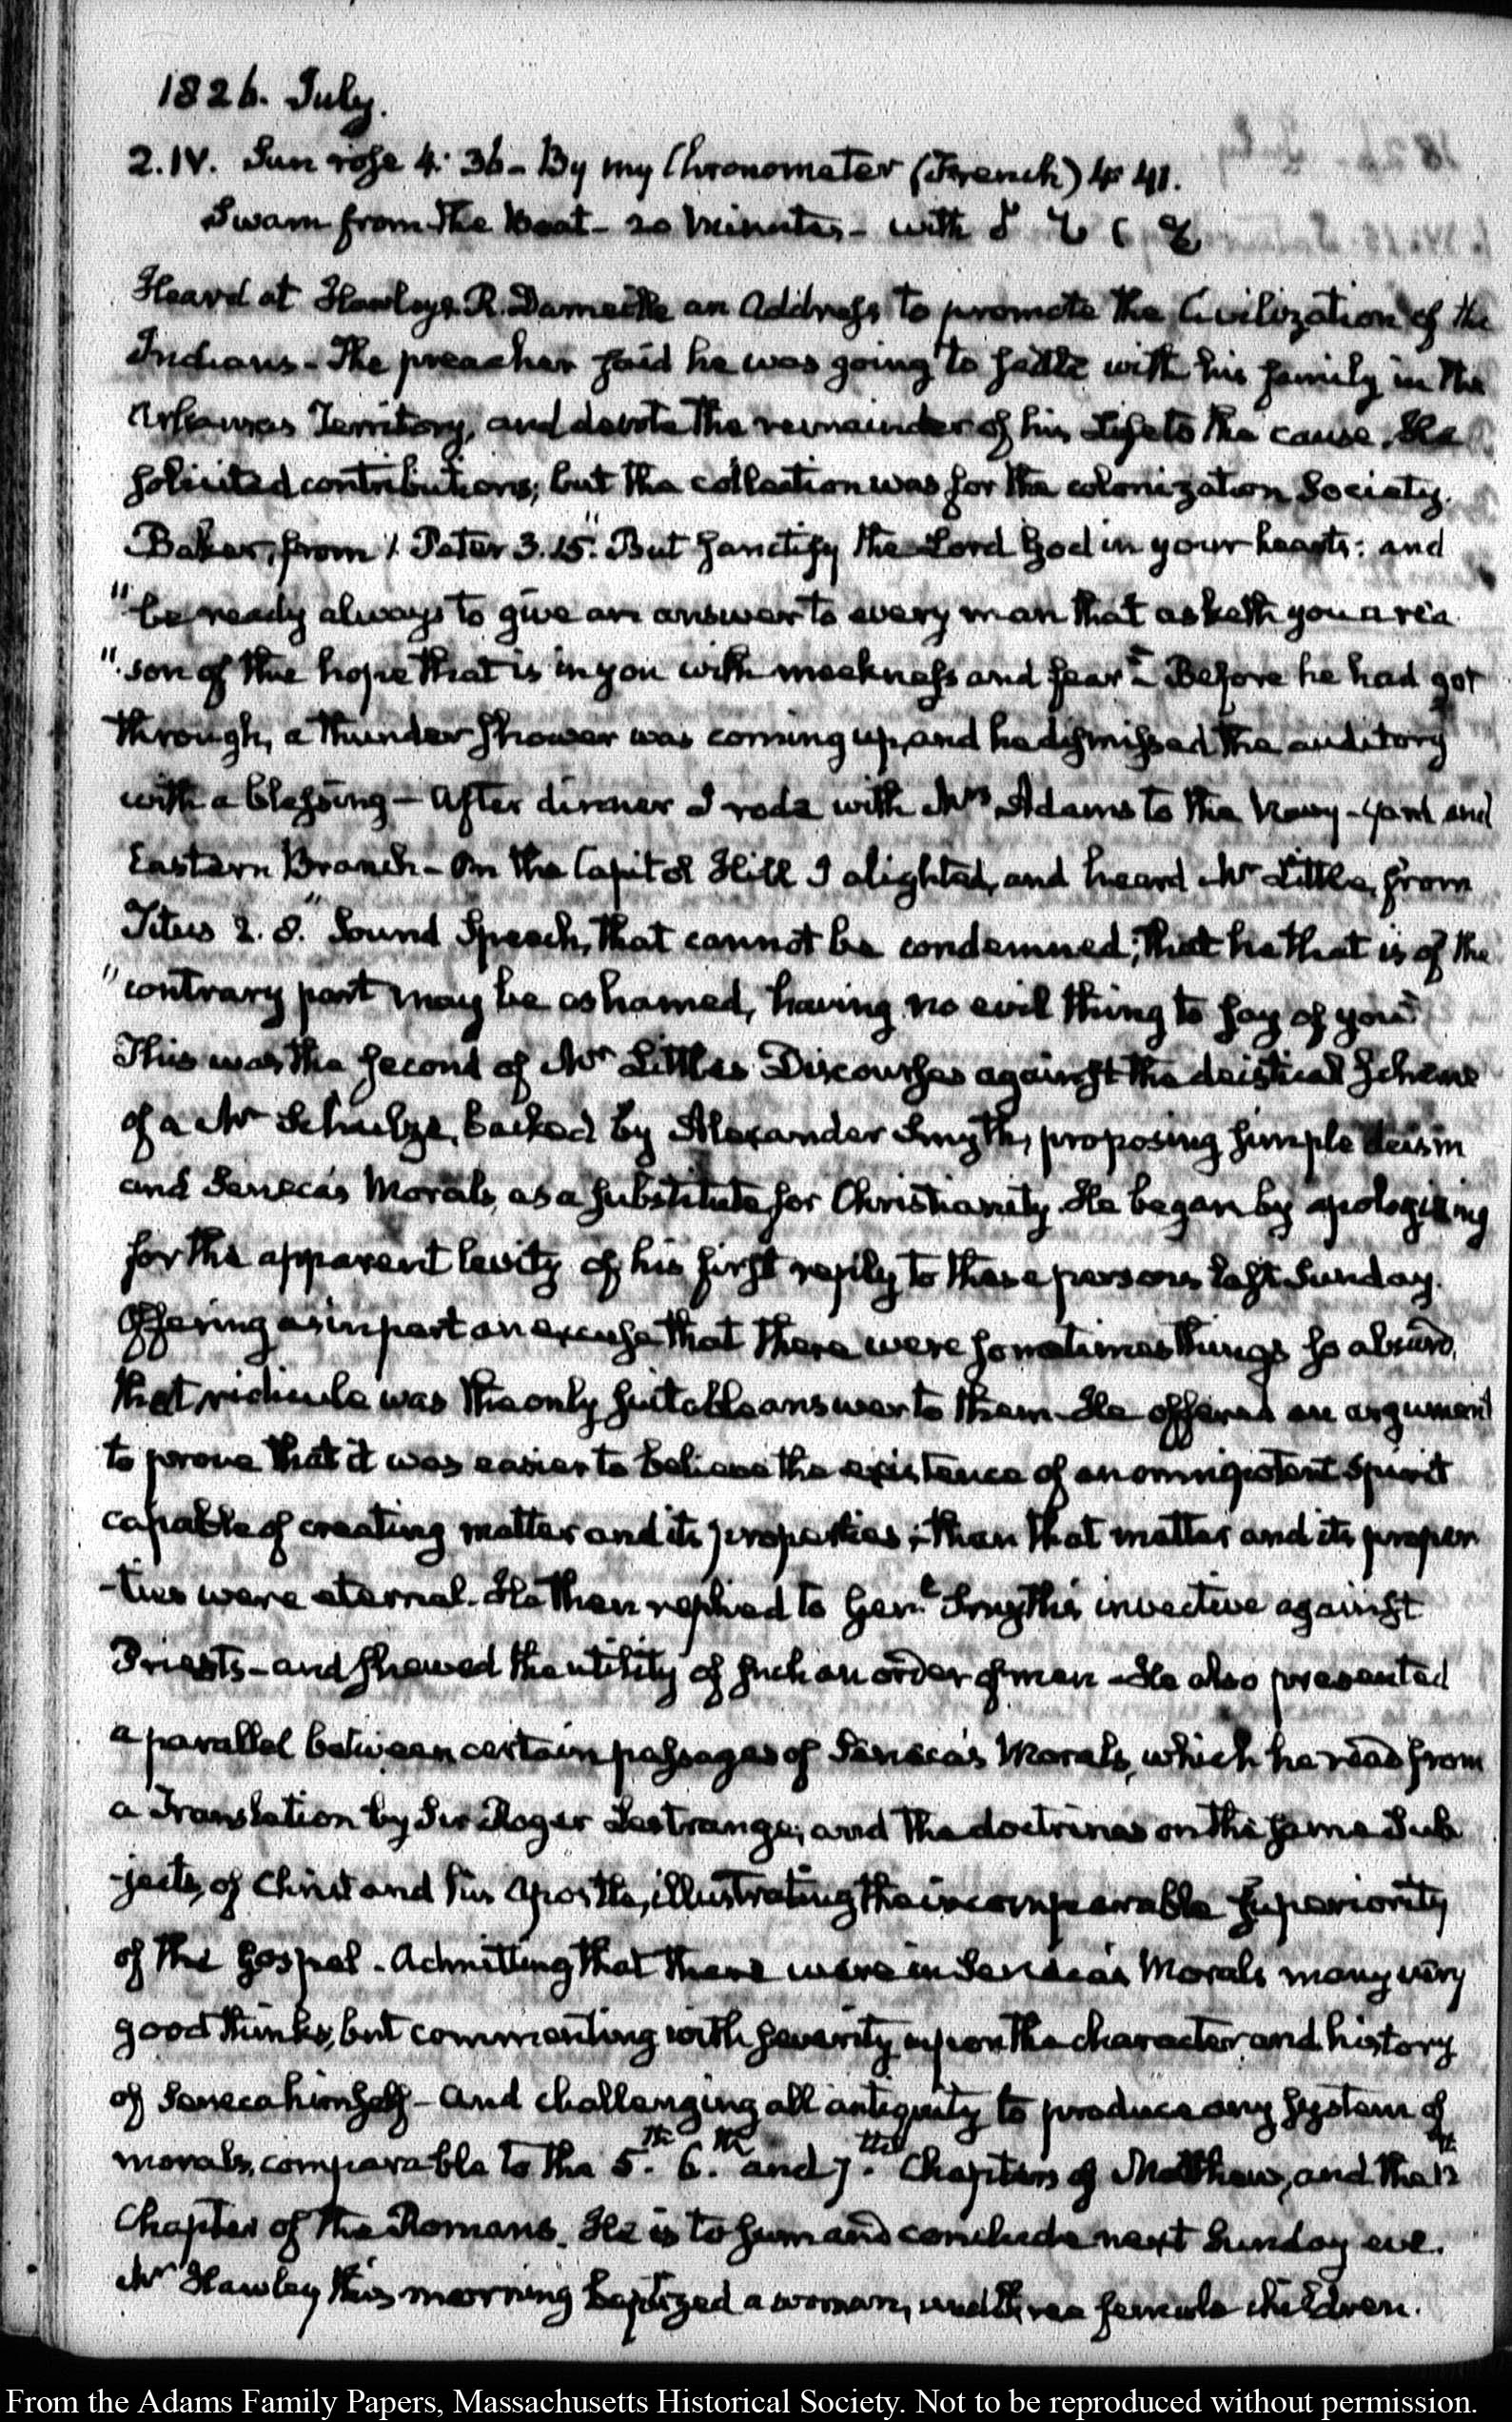 1826. July.
2. IV. Sun rose 4: 36 - By my Chronometer (French) 4: 41.
Swam from the Boat - 20 Minutes - with
Heard at Hawley's R. an Address to promote the Civilization of the
Indians - The preacher said he was going to settle with his family in the
Arkansas Territory, and devote the remainder of his Life to the cause. He
solicited contributions; but the collection was for the colonization Society.
Baker, from 1. Peter 3. 15. "But sanctify the Lord God in your hearts: and
"be ready always to give an answer to every man that asketh you a rea
"son of the hope that is in you with meekness and fear" - Before he had got
through, a thunder shower was coming up, and he dismissed the auditory
with a blessing - After dinner I rode with Mrs Adams to the Navy-yard and
Eastern Branch - On the Capitol Hill I alighted, and heard Mr Little, from
Titus 2. 8. "Sound Speech, that cannot be condemned; that he that is of the
"contrary part may be ashamed, having no evil thing to say of you"
This was the second of Mr Little's Discourses against the deistical scheme
of a Mr Schultze, backed by Alexander Smyth, proposing simple deism
and Seneca's Morals, as a substitute for Christianity. He began by apologizing
for the apparent levity of his first reply to these persons last Sunday.
Offering as in part an excuse that there were sometimes things so absurd,
that ridicule was the only suitable answer to them - He offered an argument
to prove that it was easier to believe the existence of an omnipotent Spirit
capable of creating matter and its properties, than that matter and its proper
-ties were eternal. He then replied to Genl Smyth's invective against
Priests - and shewed the utility of such an order of men - He also presented
a parallel between certain passages of Seneca's Morals, which he read from
a Translation by Sir Roger Lestrange; and the doctrines on the same Sub
-jects, of Christ and his Apostles, illustrating the incomparable superiority
of the Gospel - Admitting that there were in Seneca's Morals many very
good thinks, but commenting with severity upon the character and history
of Seneca himself - And challenging all antiquity to produce any system of
morals, comparable to the 5.th 6.th and 7.th Chapters of Matthew, and the 12th
Chapter of the Romans. He is to sum and conclude next Sunday eve.
Mr Hawley this morning baptized a woman, and three female children.
From the Adams Family Papers, Massachusetts Historical Society. Not to be reproduced without permission.